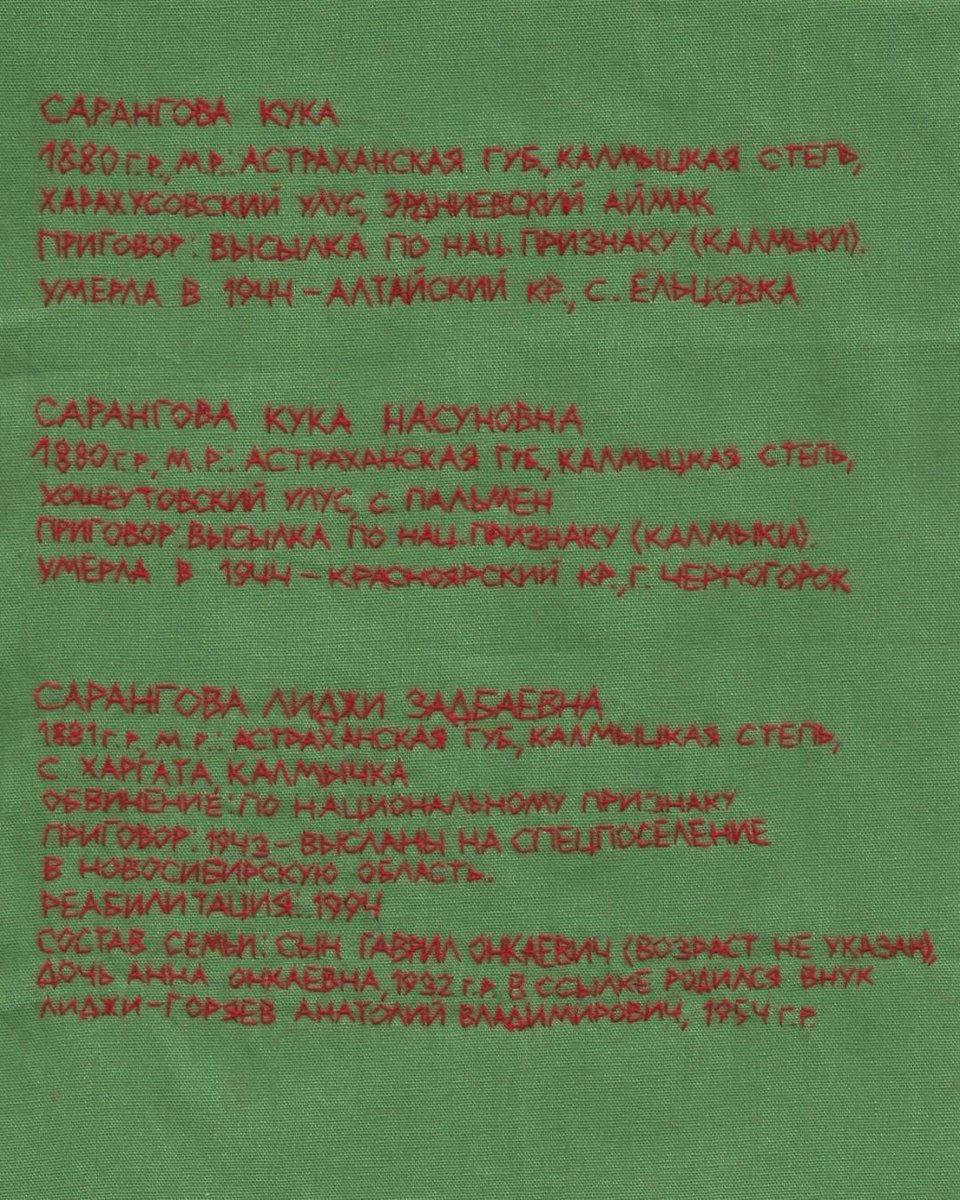 САРАНГОВА КУКА
1880 Г.Р., М.Р.: АСТРАХАНСКАЯ ГУБ., КАЛМЫЦКАЯ СТЕПЬ,
ХАРАХУСОВСКИЙ УЛУС, ЭРДНИЕВСКИЙ АЙМАК
ПРИГОВОР: ВЫСЫЛКА ПО НАЦ. ПРИЗНАКУ (КАЛМЫКИ).
УМЕРЛА В 1944 – АЛТАЙСКИЙ КР., С. ЕЛЬЦОВКА
САРАНГОВА КУКА НАСУНОВНА
1880 Г.Р., М.Р.: АСТРАХАНСКАЯ ГУБ., КАЛМЫЦКАЯ СТЕПЬ,
ХОШЕУТОВСКИЙ УЛУС, С. ПАЛЬМЕН
ПРИГОВОР: ВЫСЫЛКА ПО НАЦ. ПРИЗНАКУ (КАЛМЫКИ).
УМЕРЛА В 1944 – КРАСНОЯРСКИЙ КР., Г. ЧЕРНОГОРОК
САРАНГОВА ЛИДЖИ ЗАДБАЕВНА
1881 Г.Р., М.Р.: АСТРАХАНСКАЯ ГУБ., КАЛМЫЦКАЯ СТЕПЬ,
С. ХАРГАТА, КАЛМЫЧКА
ОБВИНЕНИЕ: ПО НАЦИОНАЛЬНОМУ ПРИЗНАКУ
ПРИГОВОР: 1943 – ВЫСЛАНЫ НА СПЕЦПОСЕЛЕНИЕ
В НОВОСИБИРСКУЮ ОБЛАСТЬ.
РЕАБИЛИТАЦИЯ: 1994
СОСТАВ СЕМЬИ: СЫН ГАВРИЛ ОНКАЕВИЧ (ВОЗРАСТ НЕ УКАЗАН),
ДОЧЬ АННА ОНКАЕВНА, 1932 Г.Р. В ССЫЛКЕ РОДИЛСЯ ВНУК
ЛИДЖИ-ГОРЯЕВ АНАТОЛИЙ ВЛАДИМИРОВИЧ, 1954 Г.Р.